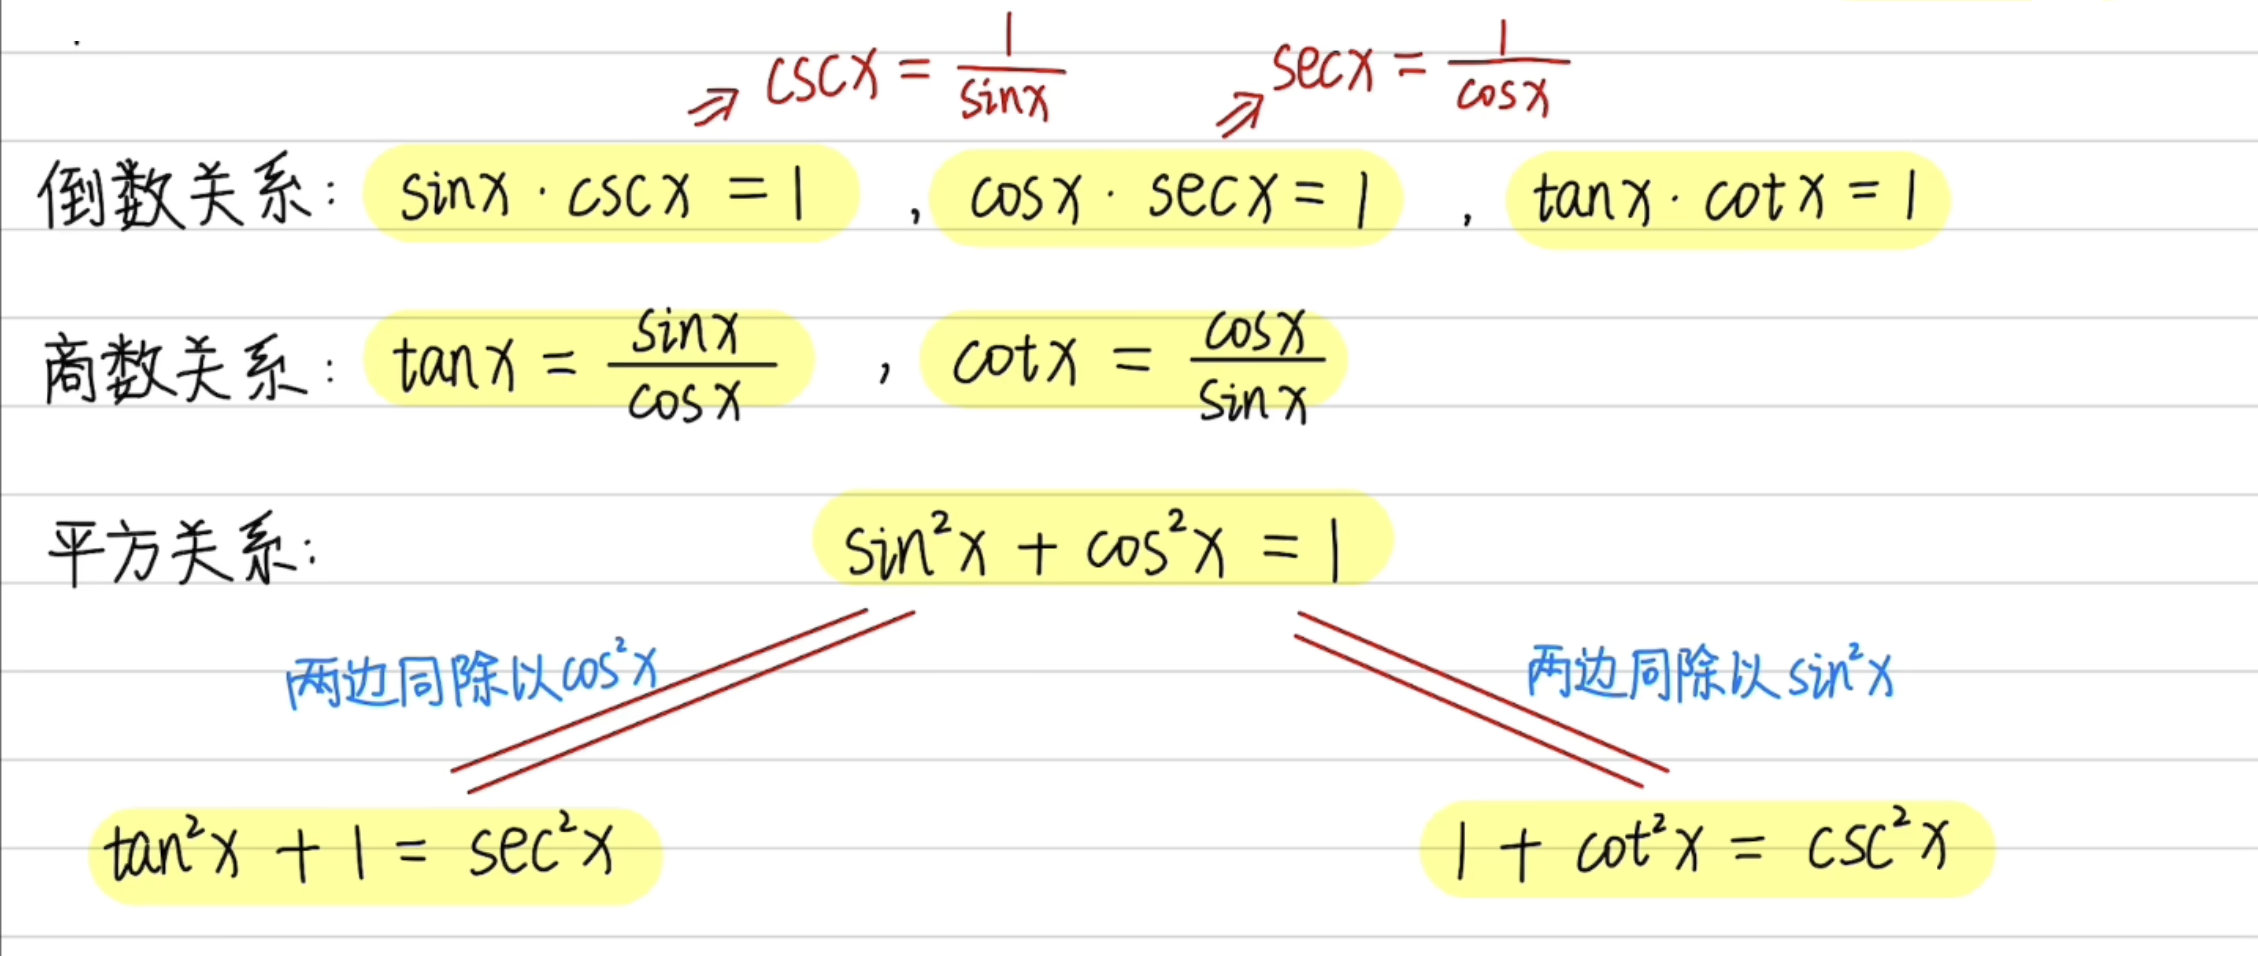 ⇒ cscx = 1/sinx ⇒ secx = 1/cosx
倒数关系: sinx · cscx = 1 , cosx · secx = 1 , tanx · cotx = 1
商数关系: tanx = sinx/cosx , cotx = cosx/sinx
平方关系: sin²x + cos²x = 1
两边同除以cos²x 两边同除以sin²x
tan²x + 1 = sec²x 1 + cot²x = csc²x